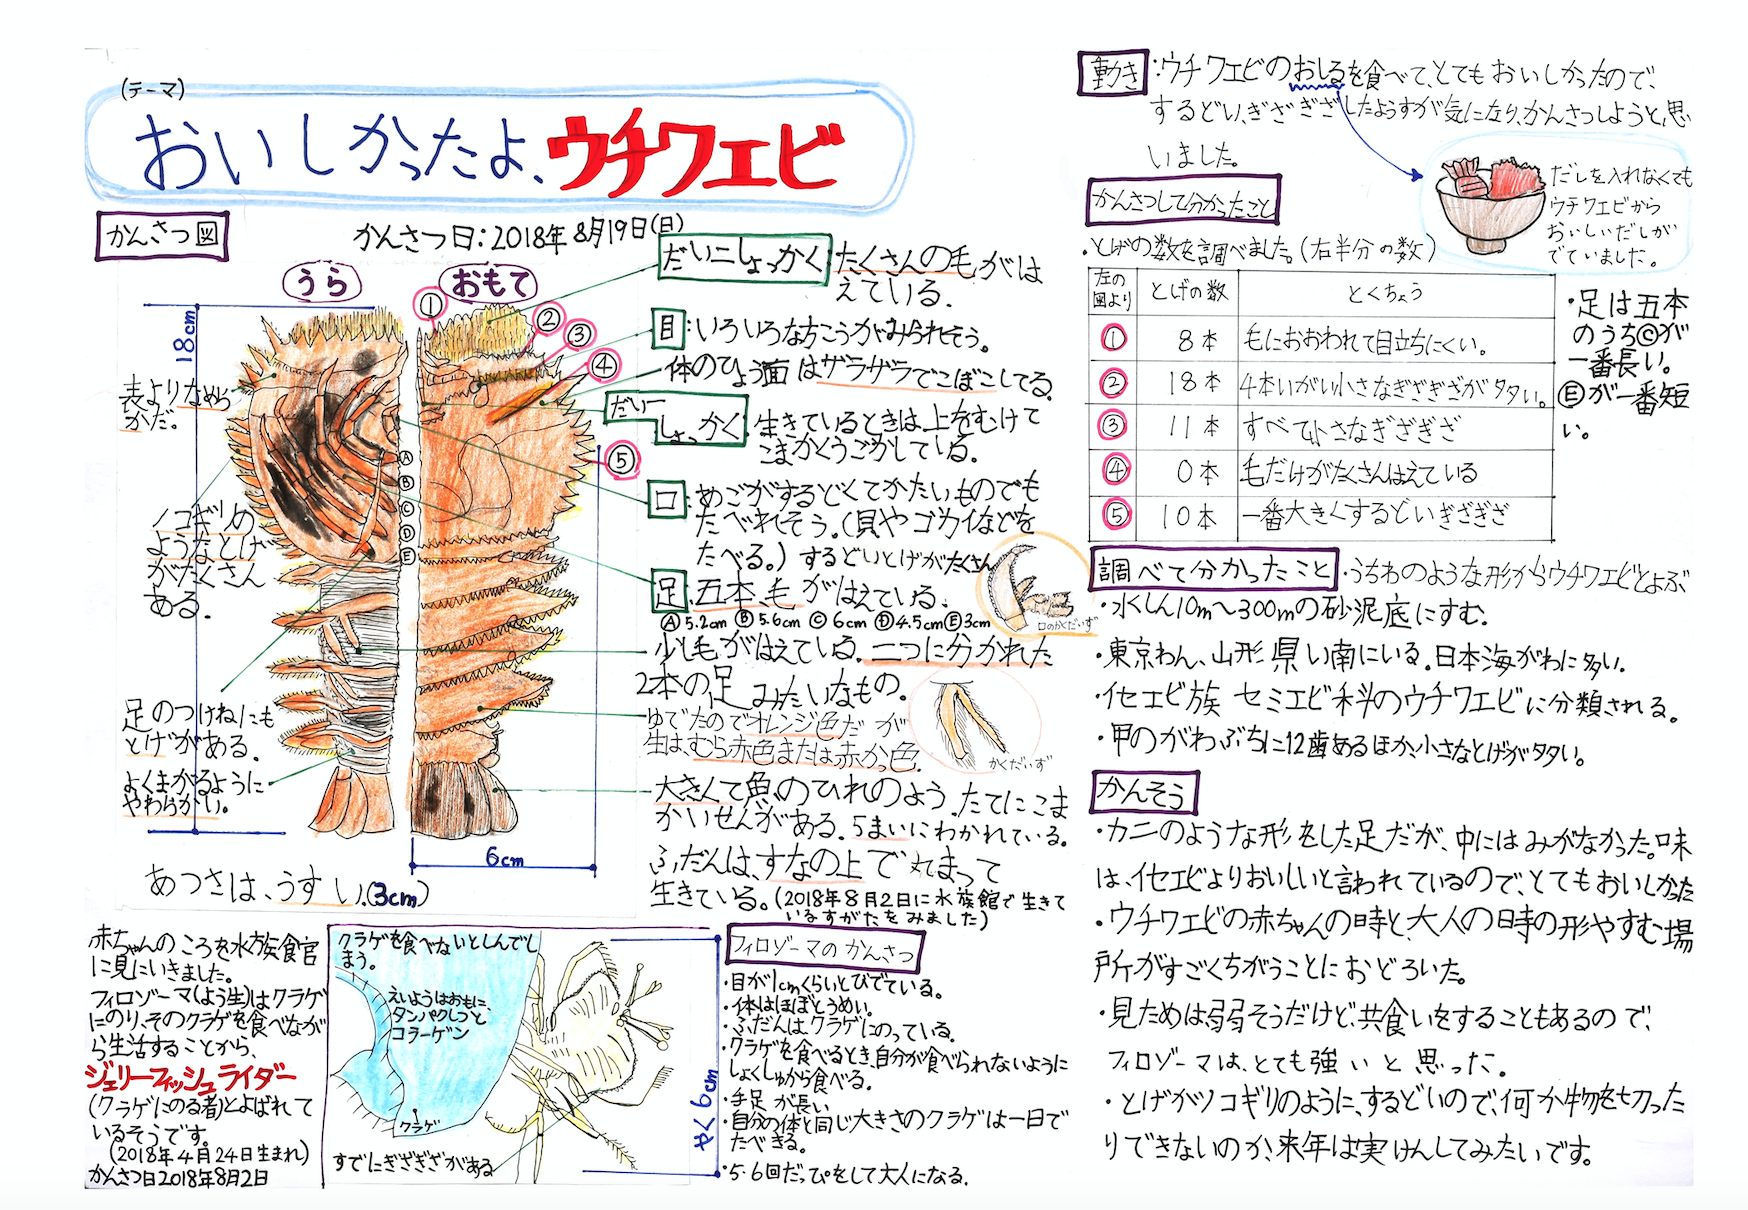 (テーマ)
おいしかったよ、ウチワエビ
かんさつ図
かんさつ日:2018年8月19日(日)
うら
おもて
①
②
③
④
⑤
18cm
表よりなめら
かだ。
ノコギリの
ようなとげ
がたくさん
ある。
足のつけねにも
とげがある。
よくまがるように
やわらかい。
Ⓐ
Ⓑ
Ⓒ
Ⓓ
Ⓔ
6cm
あつさは、うすい。(3cm)
だい二しょっかく:たくさんの毛がは
えている。
目:いろいろな方こうがみられそう。
体のひょう面はザラザラでこぼこしてる。
だい一
しょっかく:生きているときは、上をむけて
こまかくうごかしている。
口:めごがするどくてかたいものでも
たべれそう。(貝やゴカイなどを
たべる。)するどいとげがたくさん
口のかくだいず
足:五本、毛がはえている。
Ⓐ5.2cm Ⓑ5.6cm Ⓒ6cm Ⓓ4.5cm Ⓔ3cm
少し毛がはえている。二つに分かれた
2本の足みたいなもの。
ゆでたのでオレンジ色だが
生は、むら赤色または赤かっ色。
かくだいず
大きくて魚のひれのよう。たてにこま
かいせんがある。5まいにわかれている。
ふだんは、すなの上で丸まって
生きている。(2018年8月2日に水族館で生きて
いるすがたをみました)
赤ちゃんのころを水族館
に見にいきました。
フィロゾーマ(よう生)はクラゲ
にのり、そのクラゲを食べなが
ら生活することから、
ジェリーフィッシュライダー
(クラゲにのる者)とよばれて
いるそうです。
(2018年4月24日生まれ)
かんさつ日2018年8月2日
クラゲを食べないとしんでし
まう。
えいようはおもに、
タンパクしつと
コラーゲン
クラゲ
すでにぎざぎざがある
やく6cm
フィロゾーマのかんさつ
・目が1cmくらいとびでている。
・体はほぼとうめい。
・ふだんはクラゲにのっている。
・クラゲを食べるとき、自分が食べられないように
しょくしゅから食べる。
・手足が長い
・自分の体と同じ大きさのクラゲは一日で
たべきる。
・5・6回だっぴをして大人になる。
動き:ウチワエビのおしるを食べて、とてもおいしかったので、
するどい、ぎざぎざしたようすが気になり、かんさつしようと、思
いました。
だしを入れなくても
ウチワエビから
おいしいだしが
でていました。
かんさつして分かったこと
・とげの数を調べました。(右半分の数)
左の
図より
とげの数
とくちょう
① 8本 毛におおわれて目立ちにくい。
② 18本 4本いがい小さなぎざぎざが多い。
③ 11本 すべて小さなぎざぎざ
④ 0本 毛だけがたくさんはえている
⑤ 10本 一番大きくするどいぎざぎざ
・足は五本
のうちⒸが
一番長い。
Ⓔが一番短
い。
調べて分かったこと・うちわのような形からウチワエビとよぶ
・水しん10m〜300mの砂泥底にすむ。
・東京わん、山形県い南にいる。日本海がわに多い。
・イセエビ族 セミエビ科のウチワエビに分類される。
・甲のがわぶちに12歯あるほか、小さなとげが多い。
かんそう
・カニのような形をした足だが、中にはみがなかった。味
は、イセエビよりおいしいと言われているので、とてもおいしかった
・ウチワエビの赤ちゃんの時と、大人の時の形やすむ場
所がすごくちがうことにおどろいた。
・見ためは、弱そうだけど、共食いをすることもあるので、
フィロゾーマは、とても強いと思った。
・とげがノコギリのように、するどいので、何か物を切った
りできないのか、来年は実けんしてみたいです。